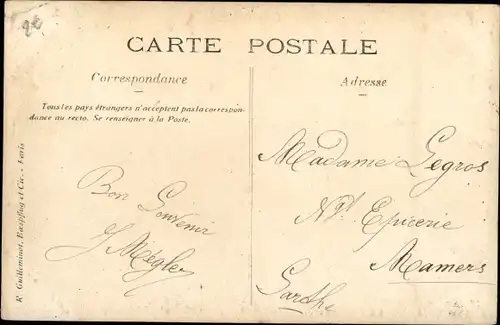 CARTE POSTALE
Correspondance
Tous les pays étrangers n'acceptent pas la correspon-
dance au recto. Se renseigner à la Poste.
Adresse
Bon Souvenir
Mégler
Madame Legros
Nt Epicerie
Mamers
Sarthe
R. Guilleminot, Bœspflug et Cie. - Paris